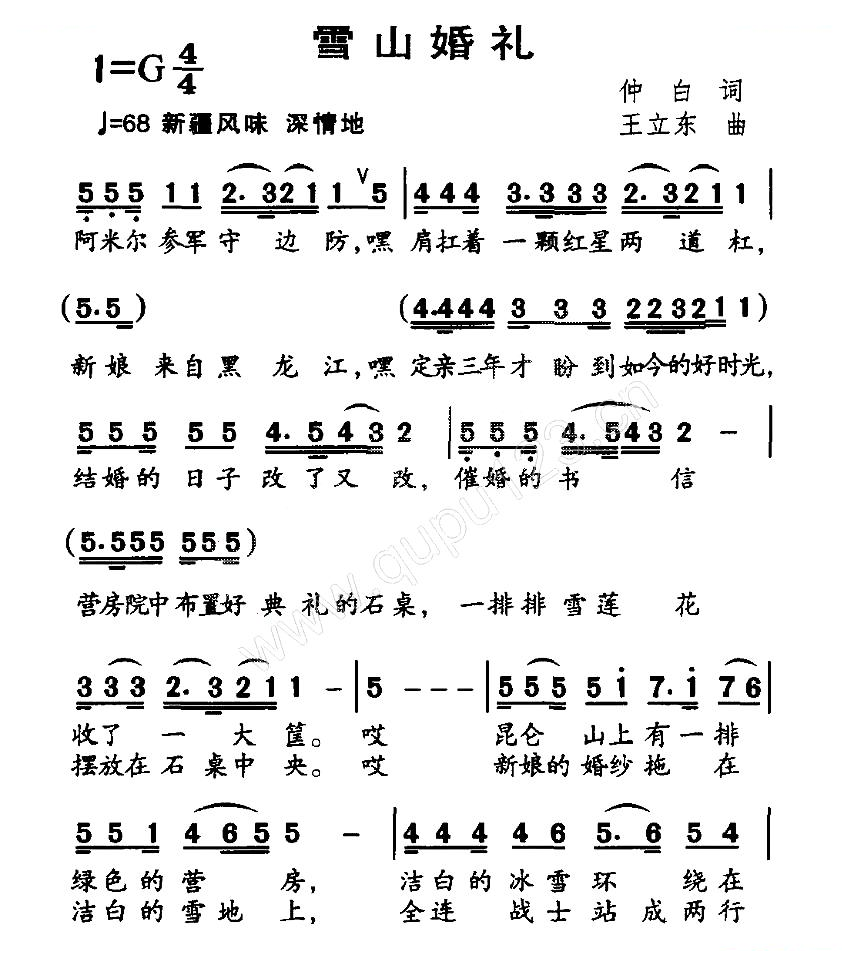 雪山婚礼
1=G 4/4
仲白 词
♩=68 新疆风味 深情地
王立东 曲
5 5 5 1 1 2. 3 2 1 1 V 5 | 4 4 4 3. 3 3 3 2. 3 2 1 1 |
阿米尔参军守 边 防,嘿 肩扛着 一颗红星两 道 杠,
(5. 5) (4. 4 4 4 3 3 3 2 2 3 2 1 1)
新娘 来自黑 龙 江,嘿 定亲三年才 盼到如今的好时光,
5 5 5 5 5 4. 5 4 3 2 | 5 5 5 4. 5 4 3 2 - |
结婚的 日子 改了又 改, 催婚的 书 信
(5. 5 5 5 5 5 5)
营房院中布置好 典礼的石桌, 一排排 雪莲 花
3 3 3 2. 3 2 1 1 - | 5 - - - | 5 5 5 5 1 7. 1 7 6 |
收了 一 大 筐。 哎 昆仑 山上有一排
摆放在 石桌中 央。 哎 新娘的 婚纱拖 在
5 5 1 4 6 5 5 - | 4 4 4 4 6 5. 6 5 4 |
绿色的 营 房, 洁白的冰雪环 绕在
洁白的 雪地 上, 全连 战士站成两行
www.qupu123.cn